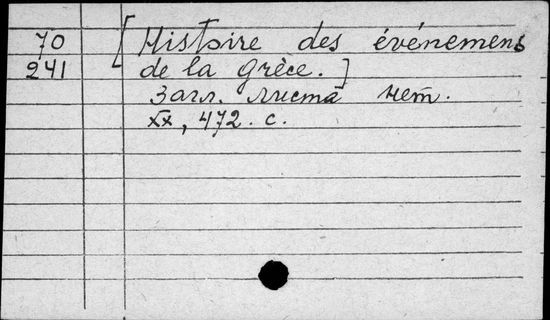 70 [Histoire des événemens
241 de la grèce.]
Загл. листа нет.
XX, 472. с.